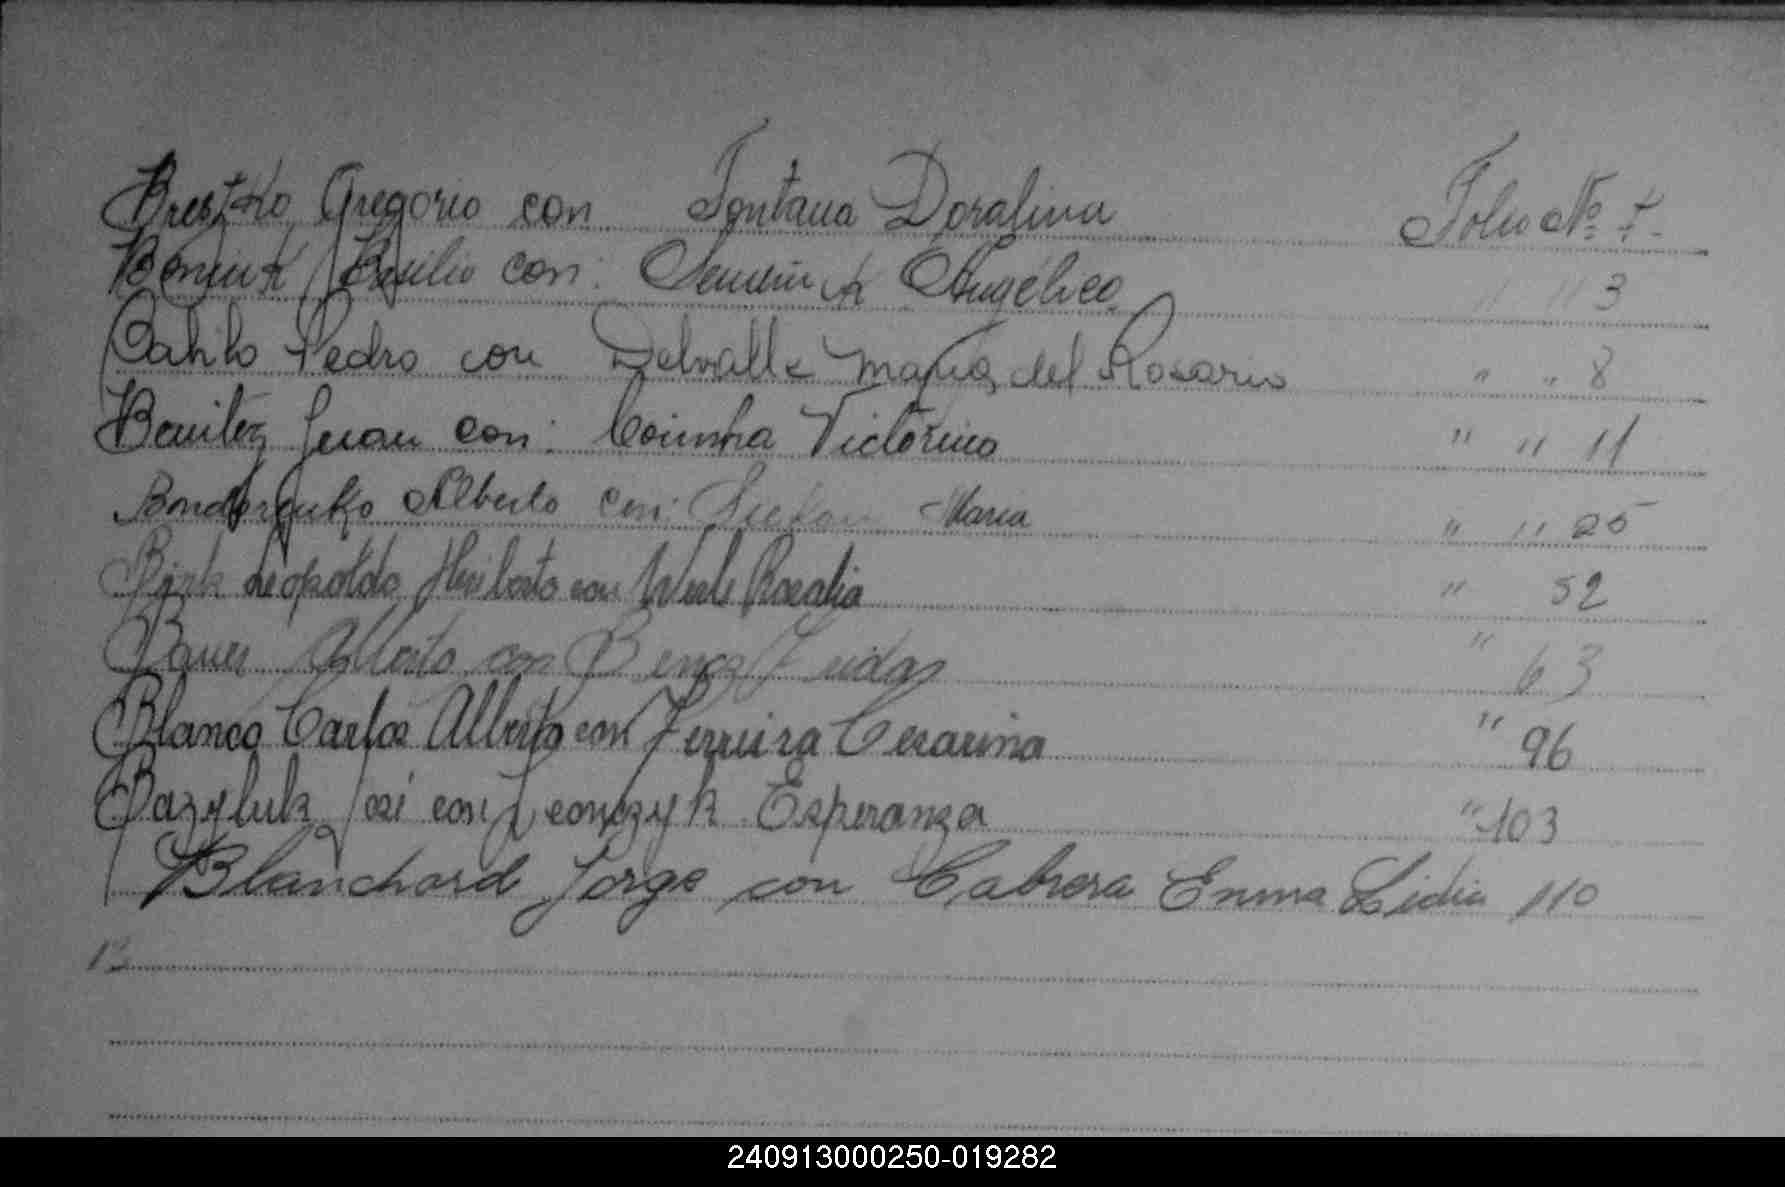 Brestko Gregorio con Fontana Doralina Folio Nº 7.
Boniuk Basilio con: Semeniuk Angélica " " 3
Batilo Pedro con Delvalle María del Rosario " " 8
Benitez Juan con: Coimbra Victorina " " 11
Bondarenko Alberto con: Maria " " 25
Leopoldo Heriberto con Werle Rosalia " 52
Bauer Alberto con " 63
Blanco Carlos Alberto con Ferreira Cesarina " 96
Bazyluk José con Leonczyk Esperanza " 103
Blanchard Jorge con Cabrera Emma Lidia 110
B
240913000250-019282